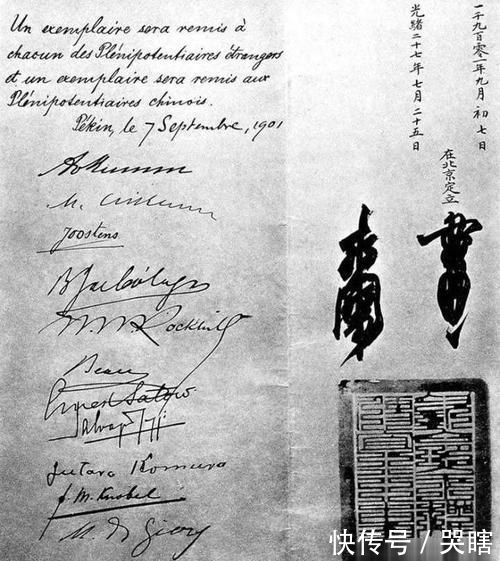 Un exemplaire sera remis à
chacun des Plénipotentiaires étrangers
et un exemplaire sera remis aux
Plénipotentiaires chinois.
Pékin, le 7 Septembre, 1901
Joostens
W. W. Rockhill
Beau
Ernest Satow
Salvago Raggi
Jutaro Komura
F. M. Knobel
M. de Giers
一千九百零一年九月初七
光緒二十七年七月二十五日
在北京定立
快传号 / 哭瞎